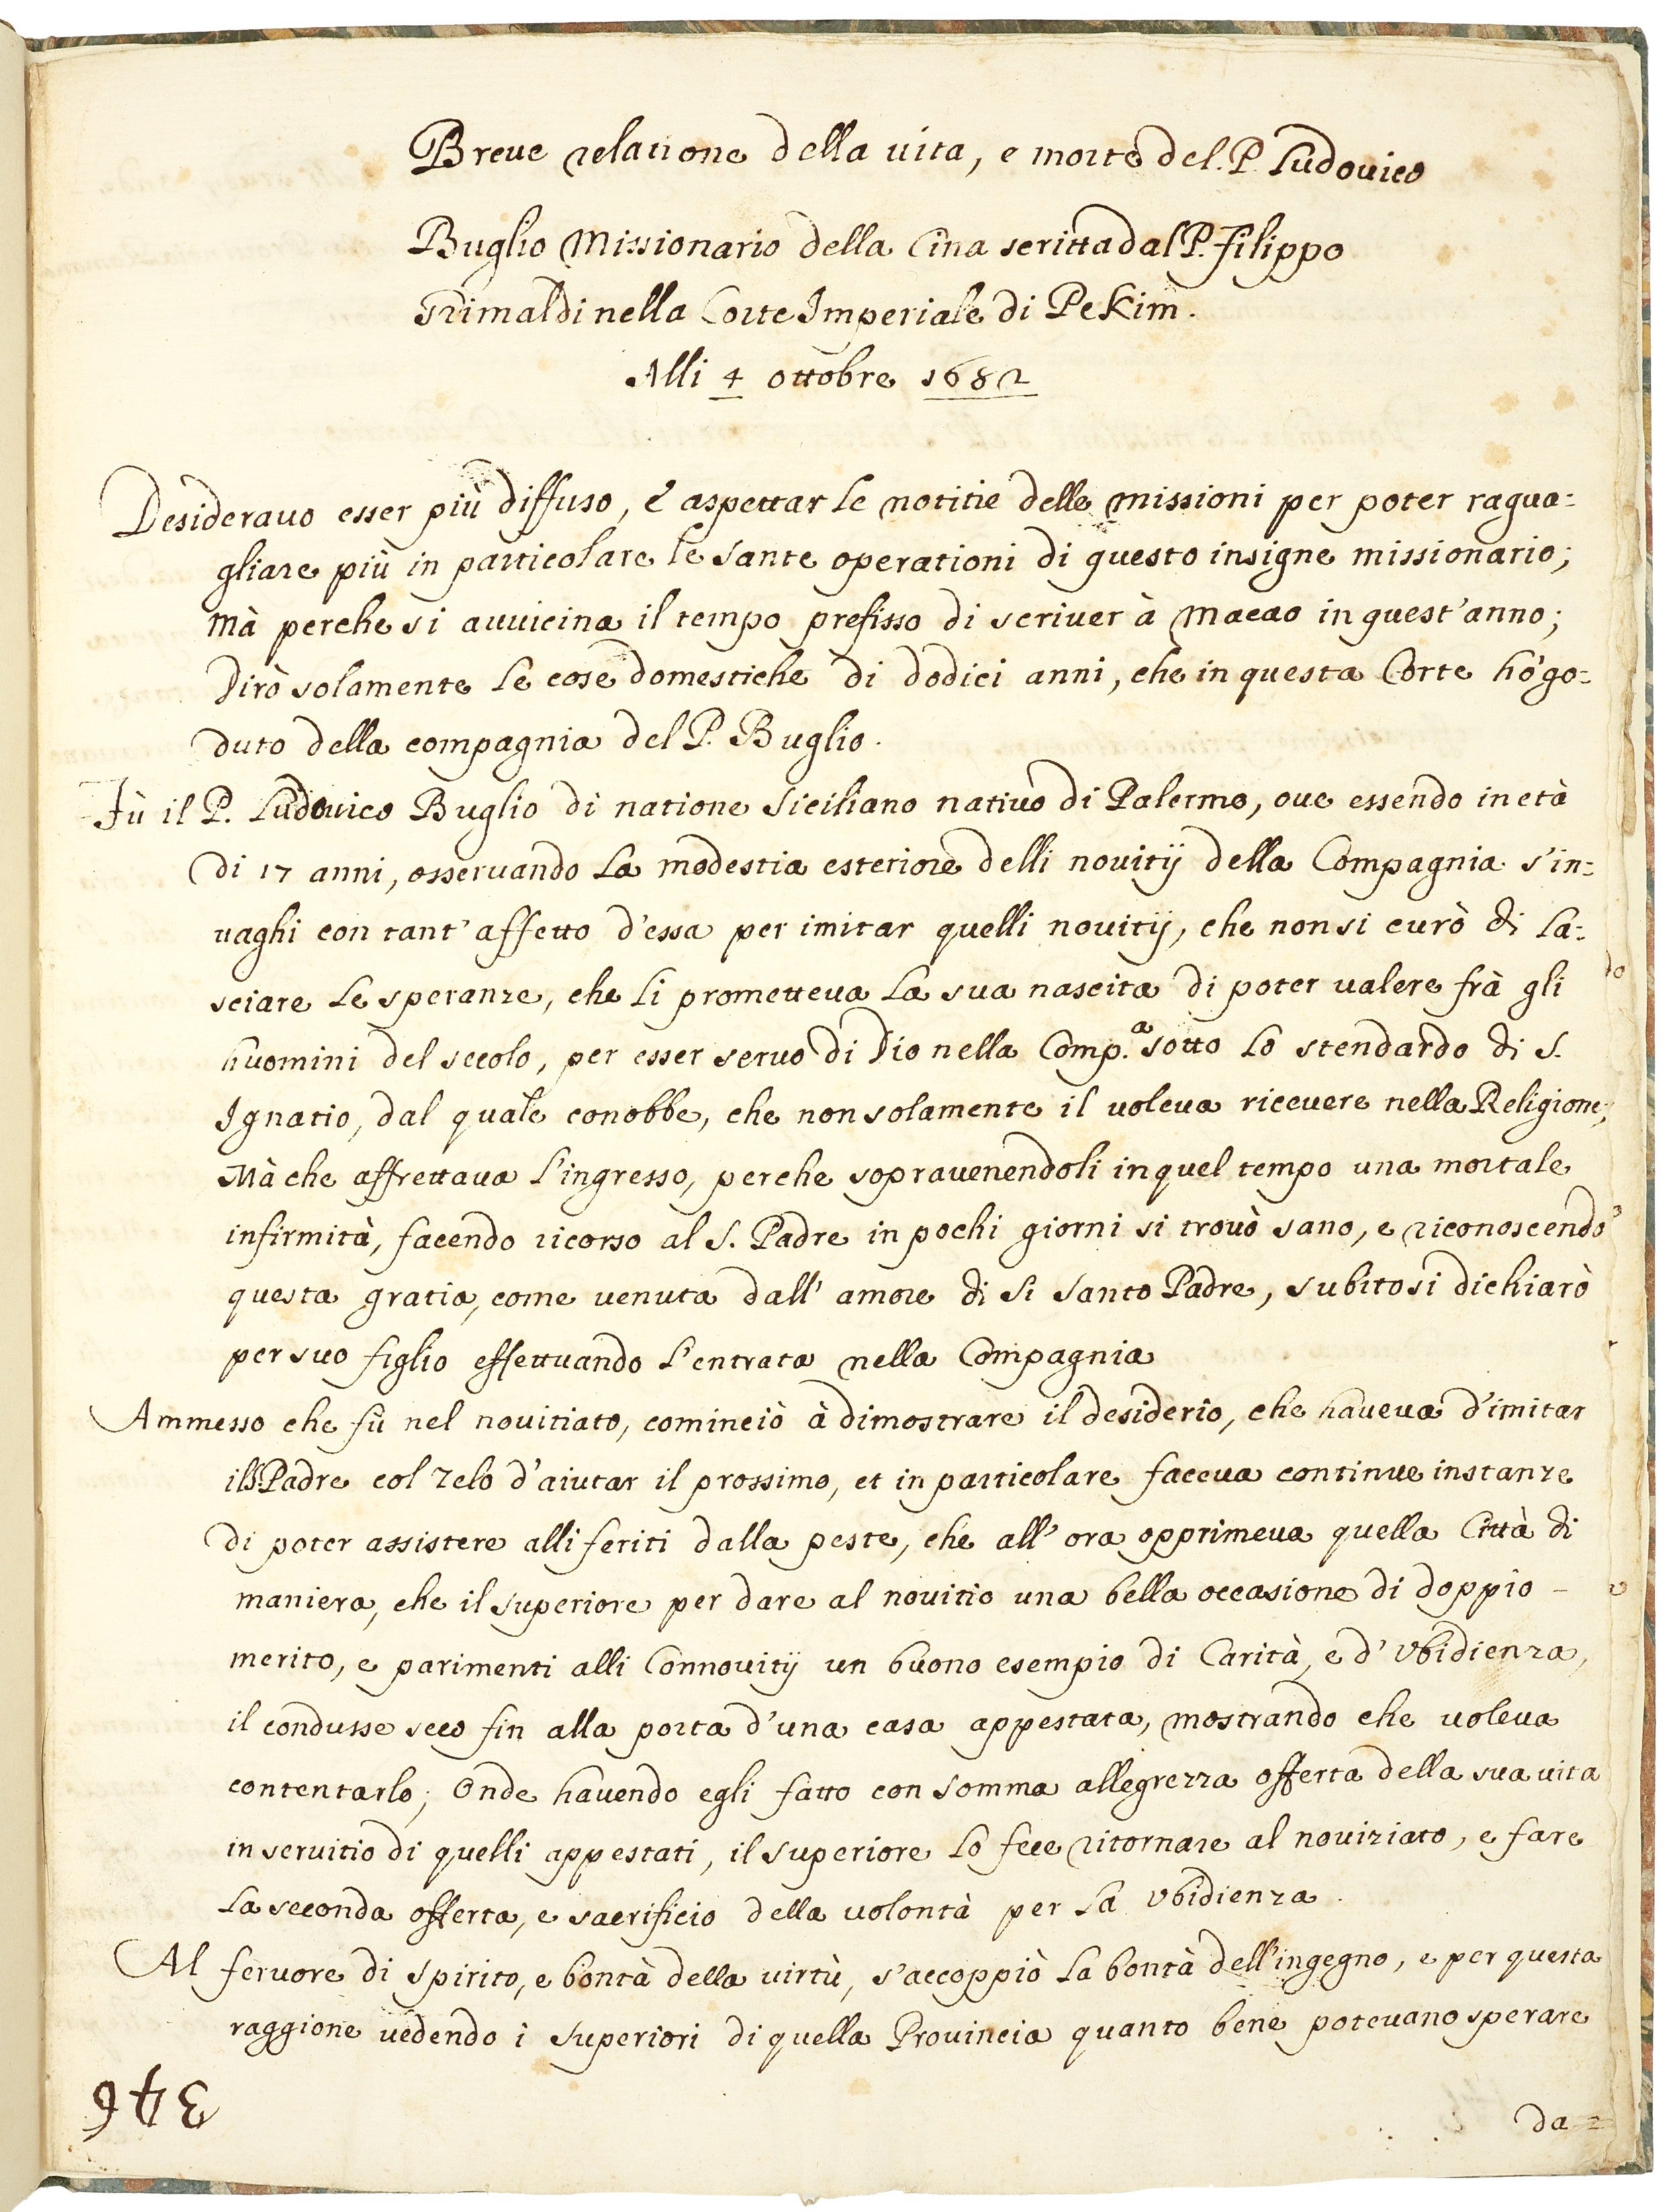 Breue relatione della uita, e morte del. P. Ludouico
Buglio Missionario della Cina scritta dal P. Filippo
Grimaldi nella Corte Imperiale di Pekim.
Alli 4 ottobre 1682
Desiderauo esser più diffuso, è aspettar le notitie delle missioni per poter ragua=
gliare più in particolare le sante operationi di questo insigne missionario;
mà perche si auuicina il tempo prefisso di scriuer à Macao in quest'anno;
dirò solamente le cose domestiche di dodici anni, che in questa Corte hò go=
duto della compagnia del P. Buglio.
Fù il P. Ludouico Buglio di natione Siciliano natiuo di Palermo, oue essendo in età
di 17 anni, osseruando la modestia esteriore delli nouitij della Compagnia s'in=
uaghi con tant'affetto d'essa per imitar quelli nouitij, che non si curò di la=
sciare le speranze, che li prometteua la sua nascita di poter ualere frà gli
huomini del secolo, per esser seruo di Dio nella Comp.a sotto lo stendardo di S.
Ignatio, dal quale conobbe, che non solamente il uoleua riceuere nella Religione,
Mà che affrettaua l'ingresso, perche soprauenendoli in quel tempo una mortale
infirmità, facendo ricorso al S. Padre in pochi giorni si trouò sano, e riconoscendo
questa gratia, come uenuta dall' amore di Si Santo Padre, subito si dichiarò
per suo figlio effettuando l'entrata nella Compagnia
Ammesso che fù nel nouitiato, cominciò à dimostrare il desiderio, che haueua d'imitar
il S. Padre col zelo d'aiutar il prossimo, et in particolare faceua continue instanze
di poter assistere alli feriti dalla peste, che all' ora opprimeua quella Città di
maniera, che il superiore per dare al nouitio una bella occasione di doppio -
merito, e parimenti alli Connouitij un buono esempio di Carità, e d' Vbidienza,
il condusse seco fin alla porta d'una casa appestata, mostrando che uoleua
contentarlo; Onde hauendo egli fatto con somma allegrezza offerta della sua uita
in seruitio di quelli appestati, il superiore lo fece ritornare al nouiziato, e fare
la seconda offerta, e sacrificio della uolontà per la vbidienza.
Al feruore di spirito, e bontà della uirtù, s'accoppiò la bontà dell'ingegno, e per questa
raggione uedendo i superiori di quella Prouincia quanto bene poteuano sperare
346
da=